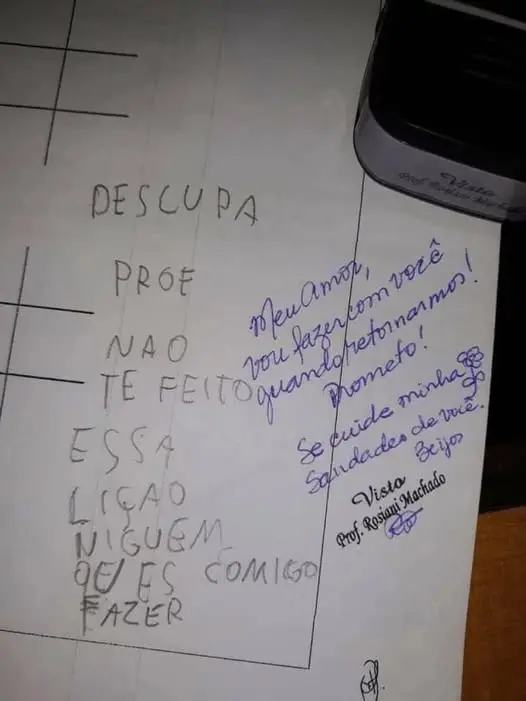 DESCUPA
PROE
NAO
TE FEITO
ESSA
LIÇAO
NIGUEM
QE ES COMIGO
FAZER
Meu amor,
vou fazer com você
quando retornarmos!
Prometo!
Se cuide minha
Saudades de você.
Beijos
Visto
Prof. Rosiani Machado
Visto
Prof. Rosiani Machado